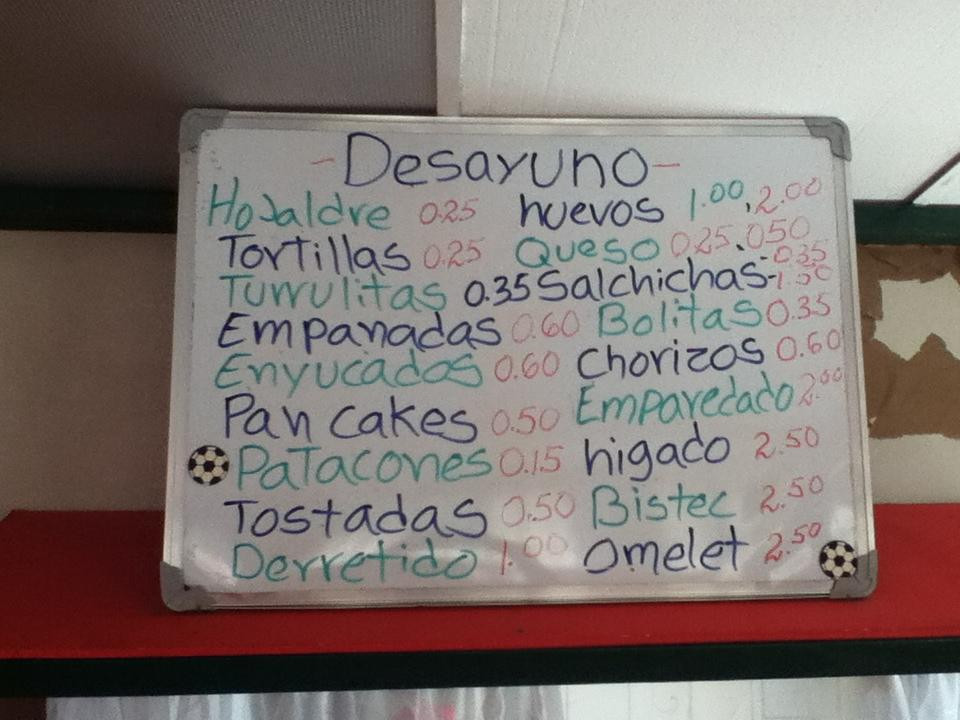 - Desayuno -
Hojaldre 0.25 huevos 1.00, 2.00
Tortillas 0.25 Queso 0.25, 050
Turrulitas 0.35 Salchichas - 0.35 - 1.50
Empanadas 0.60 Bolitas 0.35
Enyucados 0.60 Chorizos 0.60
Pan cakes 0.50 Emparedado 2.00
Patacones 0.15 higado 2.50
Tostadas 0.50 Bistec 2.50
Derretido 1.00 Omelet 2.50